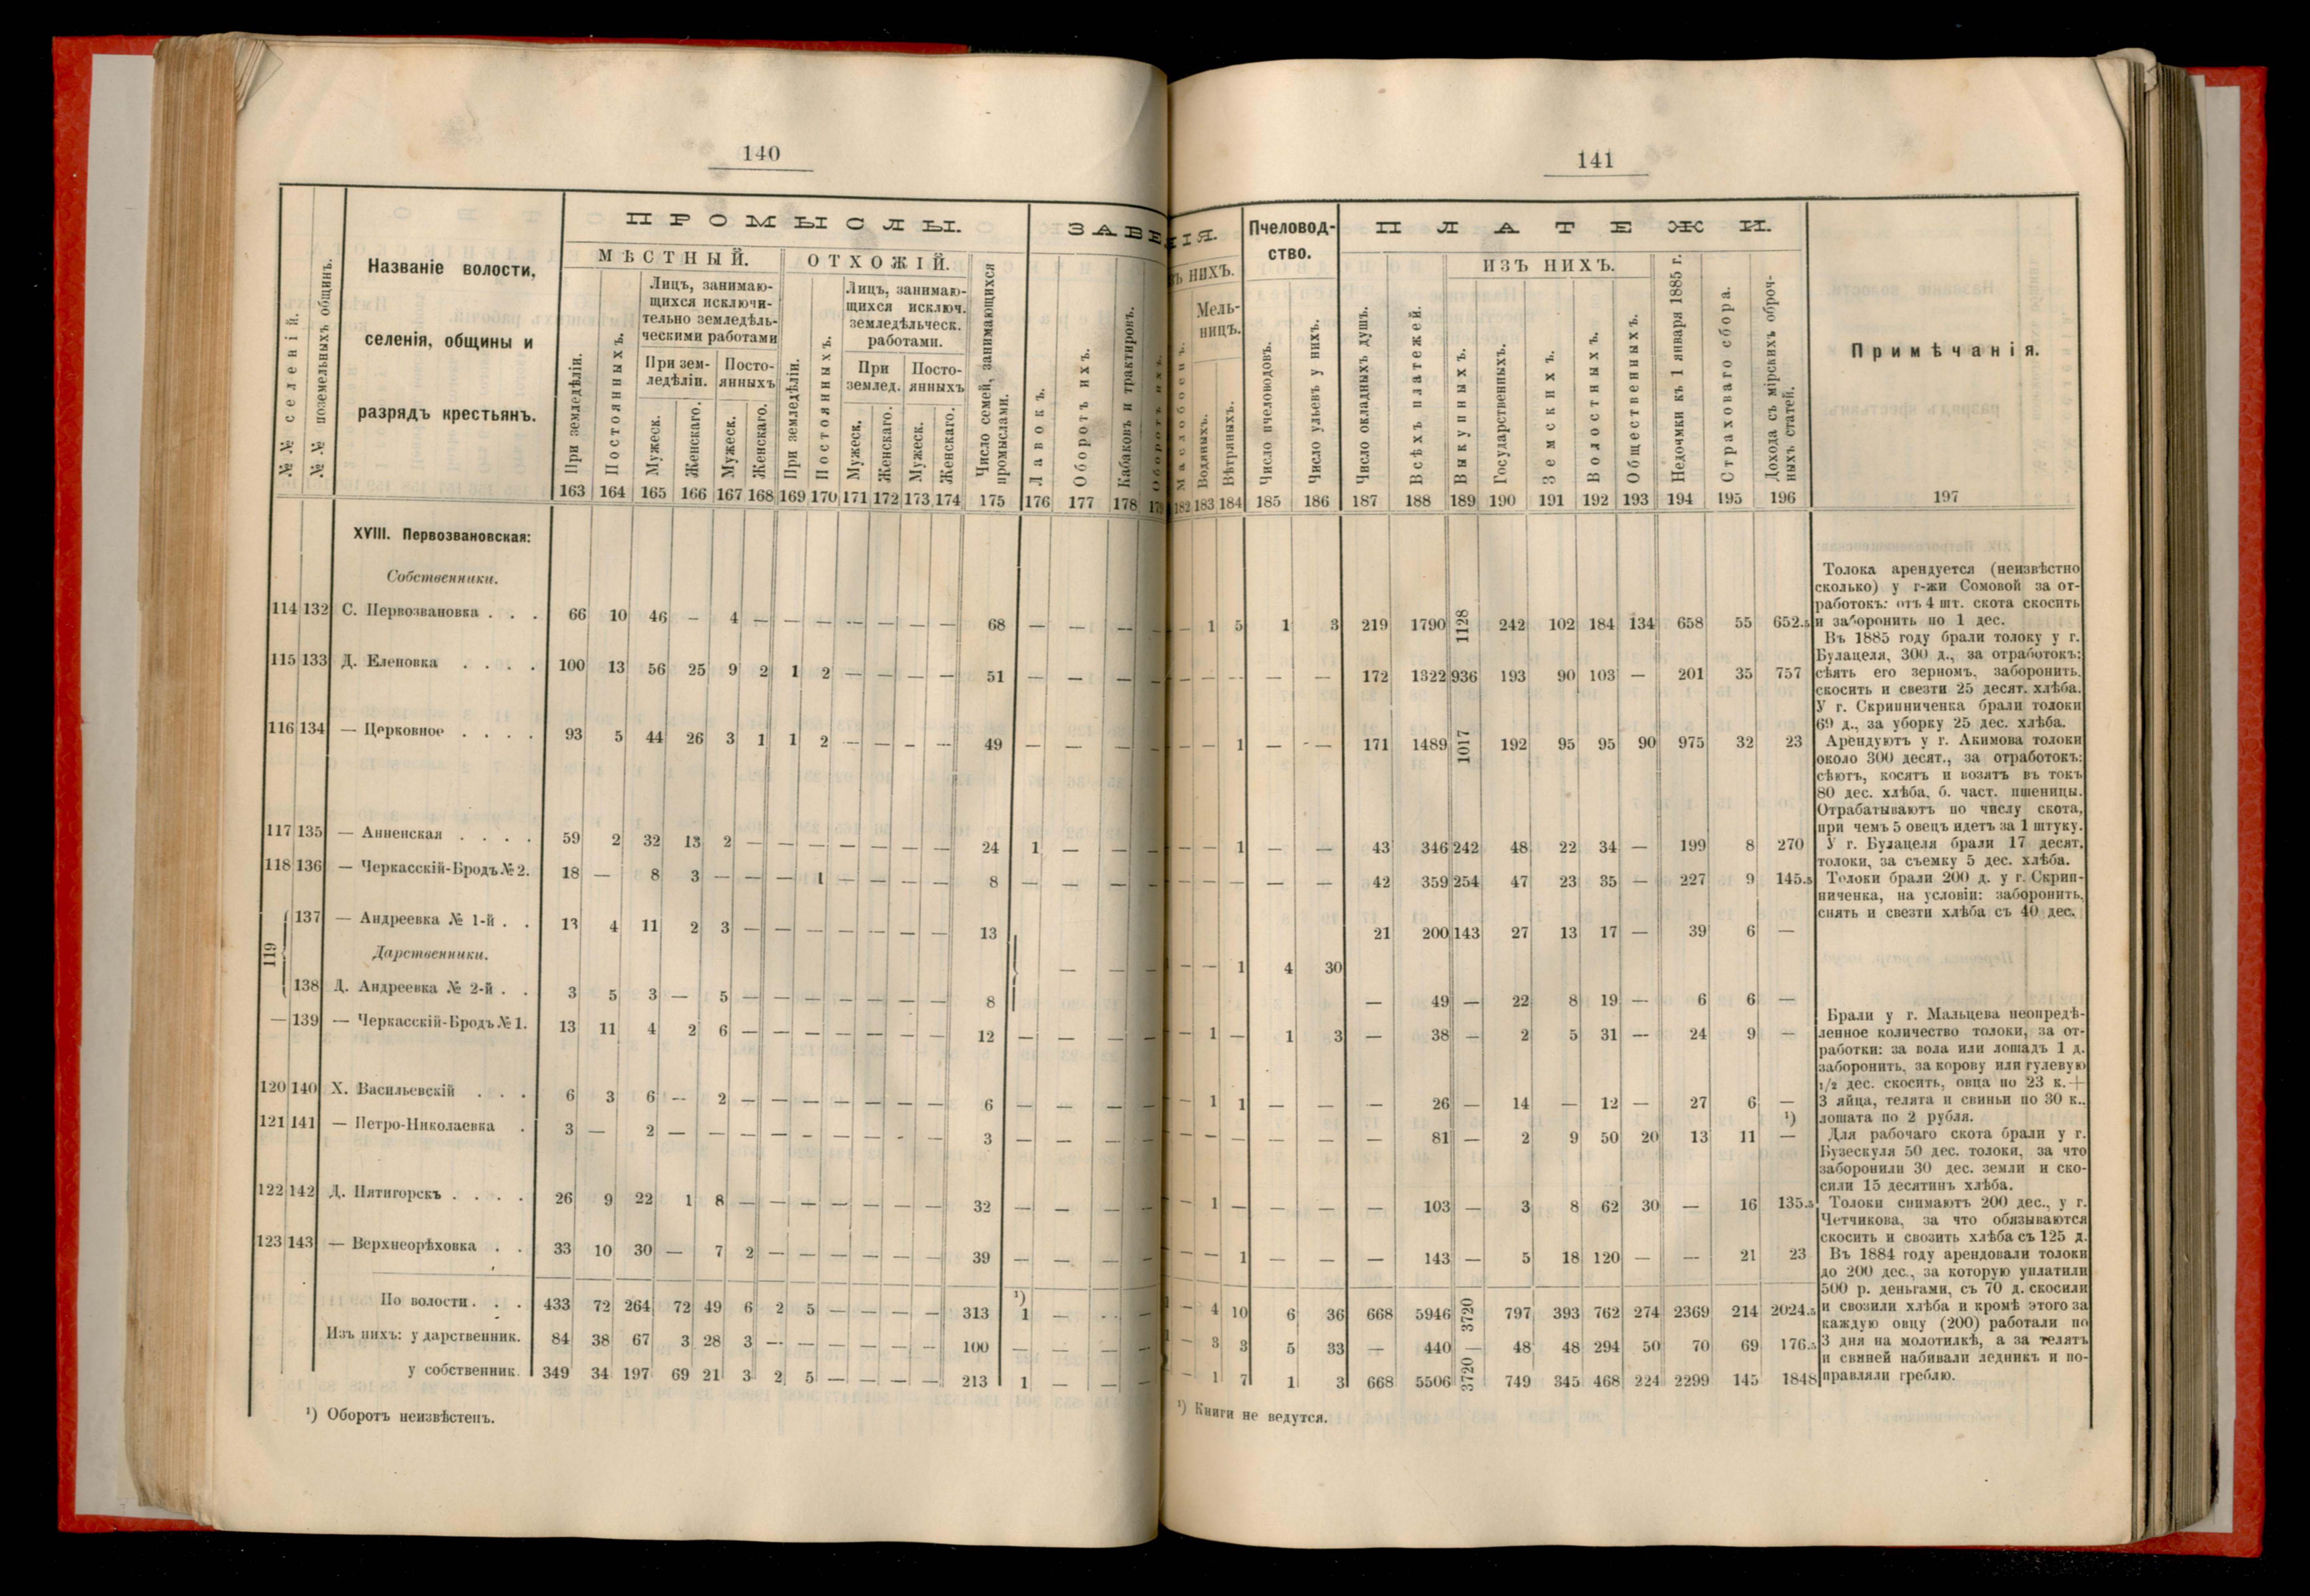 140
№№ селеній.
№№ поземельныхъ общинъ.
Названіе волости,
селенія, общины и
разрядъ крестьянъ.
ПРОМЫСЛЫ.
МѢСТНЫЙ.
ОТХОЖІЙ.
При земледѣліи.
Постоянныхъ.
Лицъ, занимаю-
щихся исключи-
тельно земледѣль-
ческими работами
При зем-
ледѣліи.
Посто-
янныхъ
Мужеск.
Женскаго.
Мужеск.
Женскаго.
При земледѣліи.
Постоянныхъ.
Лицъ, занимаю-
щихся исключ.
земледѣльческ.
работами.
При
землед.
Посто-
янныхъ
Мужеск.
Женскаго.
Мужеск.
Женскаго.
Число семей, занимающихся
промыслами.
ЗАВЕ
Лавокъ.
Оборотъ ихъ.
Кабаковъ и трактировъ.
Оборотъ ихъ.
163 164 165 166 167 168 169 170 171 172 173 174 175 176 177 178 179
XVIII. Первозвановская:
Собственники.
114 132 С. Первозвановка . . . 66 10 46 — 4 — — — — — — — 68 — — — —
115 133 Д. Еленовка . . . . 100 13 56 25 9 2 1 2 — — — — 51 — — — —
116 134 — Церковное . . . . 93 5 44 26 3 1 1 2 — — — — 49 — — — —
117 135 — Анненская . . . . 59 2 32 13 2 — — — — — — — 24 1 — — —
118 136 — Черкасскій-Бродъ № 2. 18 — 8 3 — — — 1 — — — — 8 — — — —
119
137 — Андреевка № 1-й . . 13 4 11 2 3 — — — — — — — 13
Дарственники.
— — —
138 Д. Андреевка № 2-й . . 3 5 3 — 5 — — — — — — — 8
— 139 — Черкасскій-Бродъ № 1. 13 11 4 2 6 — — — — — — — 12 — — — —
120 140 Х. Васильевскій . . . 6 3 6 — 2 — — — — — — — 6 — — — —
121 141 — Петро-Николаевка . 3 — 2 — — — — — — — — — 3 — — — —
122 142 Д. Пятигорскъ . . . . 26 9 22 1 8 — — — — — — — 32 — — — —
123 143 — Верхнеорѣховка . . 33 10 30 — 7 2 — — — — — — 39 — — — —
По волости . . . 433 72 264 72 49 6 2 5 — — — — 313 ¹) 1 — — —
Изъ нихъ: у дарственник. 84 38 67 3 28 3 — — — — — — 100 — — — —
у собственник. 349 34 197 69 21 3 2 5 — — — — 213 1 — — —
¹) Оборотъ неизвѣстенъ.
141
НІЯ.
ЪЪ НИХЪ.
Маслобоенъ.
Мель-
ницъ.
Водяныхъ.
Вѣтряныхъ.
Пчеловод-
ство.
Число пчеловодовъ.
Число ульевъ у нихъ.
ПЛАТЕЖИ.
Число окладныхъ душъ.
Всѣхъ платежей.
ИЗЪ НИХЪ.
Выкупныхъ.
Государственныхъ.
Земскихъ.
Волостныхъ.
Общественныхъ.
Недоимки къ 1 января 1885 г.
Страховаго сбора.
Дохода съ мірскихъ оброч-
ныхъ статей.
Примѣчанія.
182 183 184 185 186 187 188 189 190 191 192 193 194 195 196 197
— 1 5 1 3 219 1790 1128 242 102 184 134 658 55 652.5
— — — — — 172 1322 936 193 90 103 — 201 35 757
— — 1 — — 171 1489 1017 192 95 95 90 975 32 23
— — 1 — — 43 346 242 48 22 34 — 199 8 270
— — — — — 42 359 254 47 23 35 — 227 9 145.5
21 200 143 27 13 17 — 39 6 —
— — 1 4 30
— 49 — 22 8 19 — 6 6 —
— 1 — 1 3 — 38 — 2 5 31 — 24 9 —
— 1 1 — — — 26 — 14 — 12 — 27 6 —
— — — — — — 81 — 2 9 50 20 13 11 ¹) —
— 1 — — — — 103 — 3 8 62 30 — 16 135.5
— — 1 — — — 143 — 5 18 120 — — 21 23
— 4 10 6 36 668 5946 3720 797 393 762 274 2369 214 2024.5
— 3 3 5 33 — 440 — 48 48 294 50 70 69 176.5
— 1 7 1 3 668 5506 3720 749 345 468 224 2299 145 1848
Толока арендуется (неизвѣстно
сколько) у г-жи Сомовой за от-
работокъ: отъ 4 шт. скота скосить
и заборонить по 1 дес.
Въ 1885 году брали толоку у г.
Булацеля, 300 д., за отработокъ:
сѣять его зерномъ, заборонить,
скосить и свезти 25 десят. хлѣба.
У г. Скрипниченка брали толоки
69 д., за уборку 25 дес. хлѣба.
Арендуютъ у г. Акимова толоки
около 300 десят., за отработокъ:
сѣютъ, косятъ и возятъ въ токъ
80 дес. хлѣба, б. част. пшеницы.
Отрабатываютъ по числу скота,
при чемъ 5 овецъ идетъ за 1 штуку.
У г. Булацеля брали 17 десят.
толоки, за съемку 5 дес. хлѣба.
Толоки брали 200 д. у г. Скрип-
ниченка, на условіи: заборонить,
снять и свезти хлѣба съ 40 дес.
Брали у г. Мальцева неопредѣ-
ленное количество толоки, за от-
работки: за вола или лошадь 1 д.
заборонить, за корову или гулевую
1/2 дес. скосить, овца по 23 к.+
3 яйца, телята и свиньи по 30 к.,
лошата по 2 рубля.
Для рабочаго скота брали у г.
Бузескуля 50 дес. толоки, за что
заборонили 30 дес. земли и ско-
сили 15 десятинъ хлѣба.
Толоки снимаютъ 200 дес., у г.
Четчикова, за что обязываются
скосить и свозить хлѣба съ 125 д.
Въ 1884 году арендовали толоки
до 200 дес., за которую уплатили
500 р. деньгами, съ 70 д. скосили
и свозили хлѣба и кромѣ этого за
каждую овцу (200) работали по
3 дня на молотилкѣ, а за телятъ
и свиней набивали ледникъ и по-
правляли греблю.
¹) Книги не ведутся.